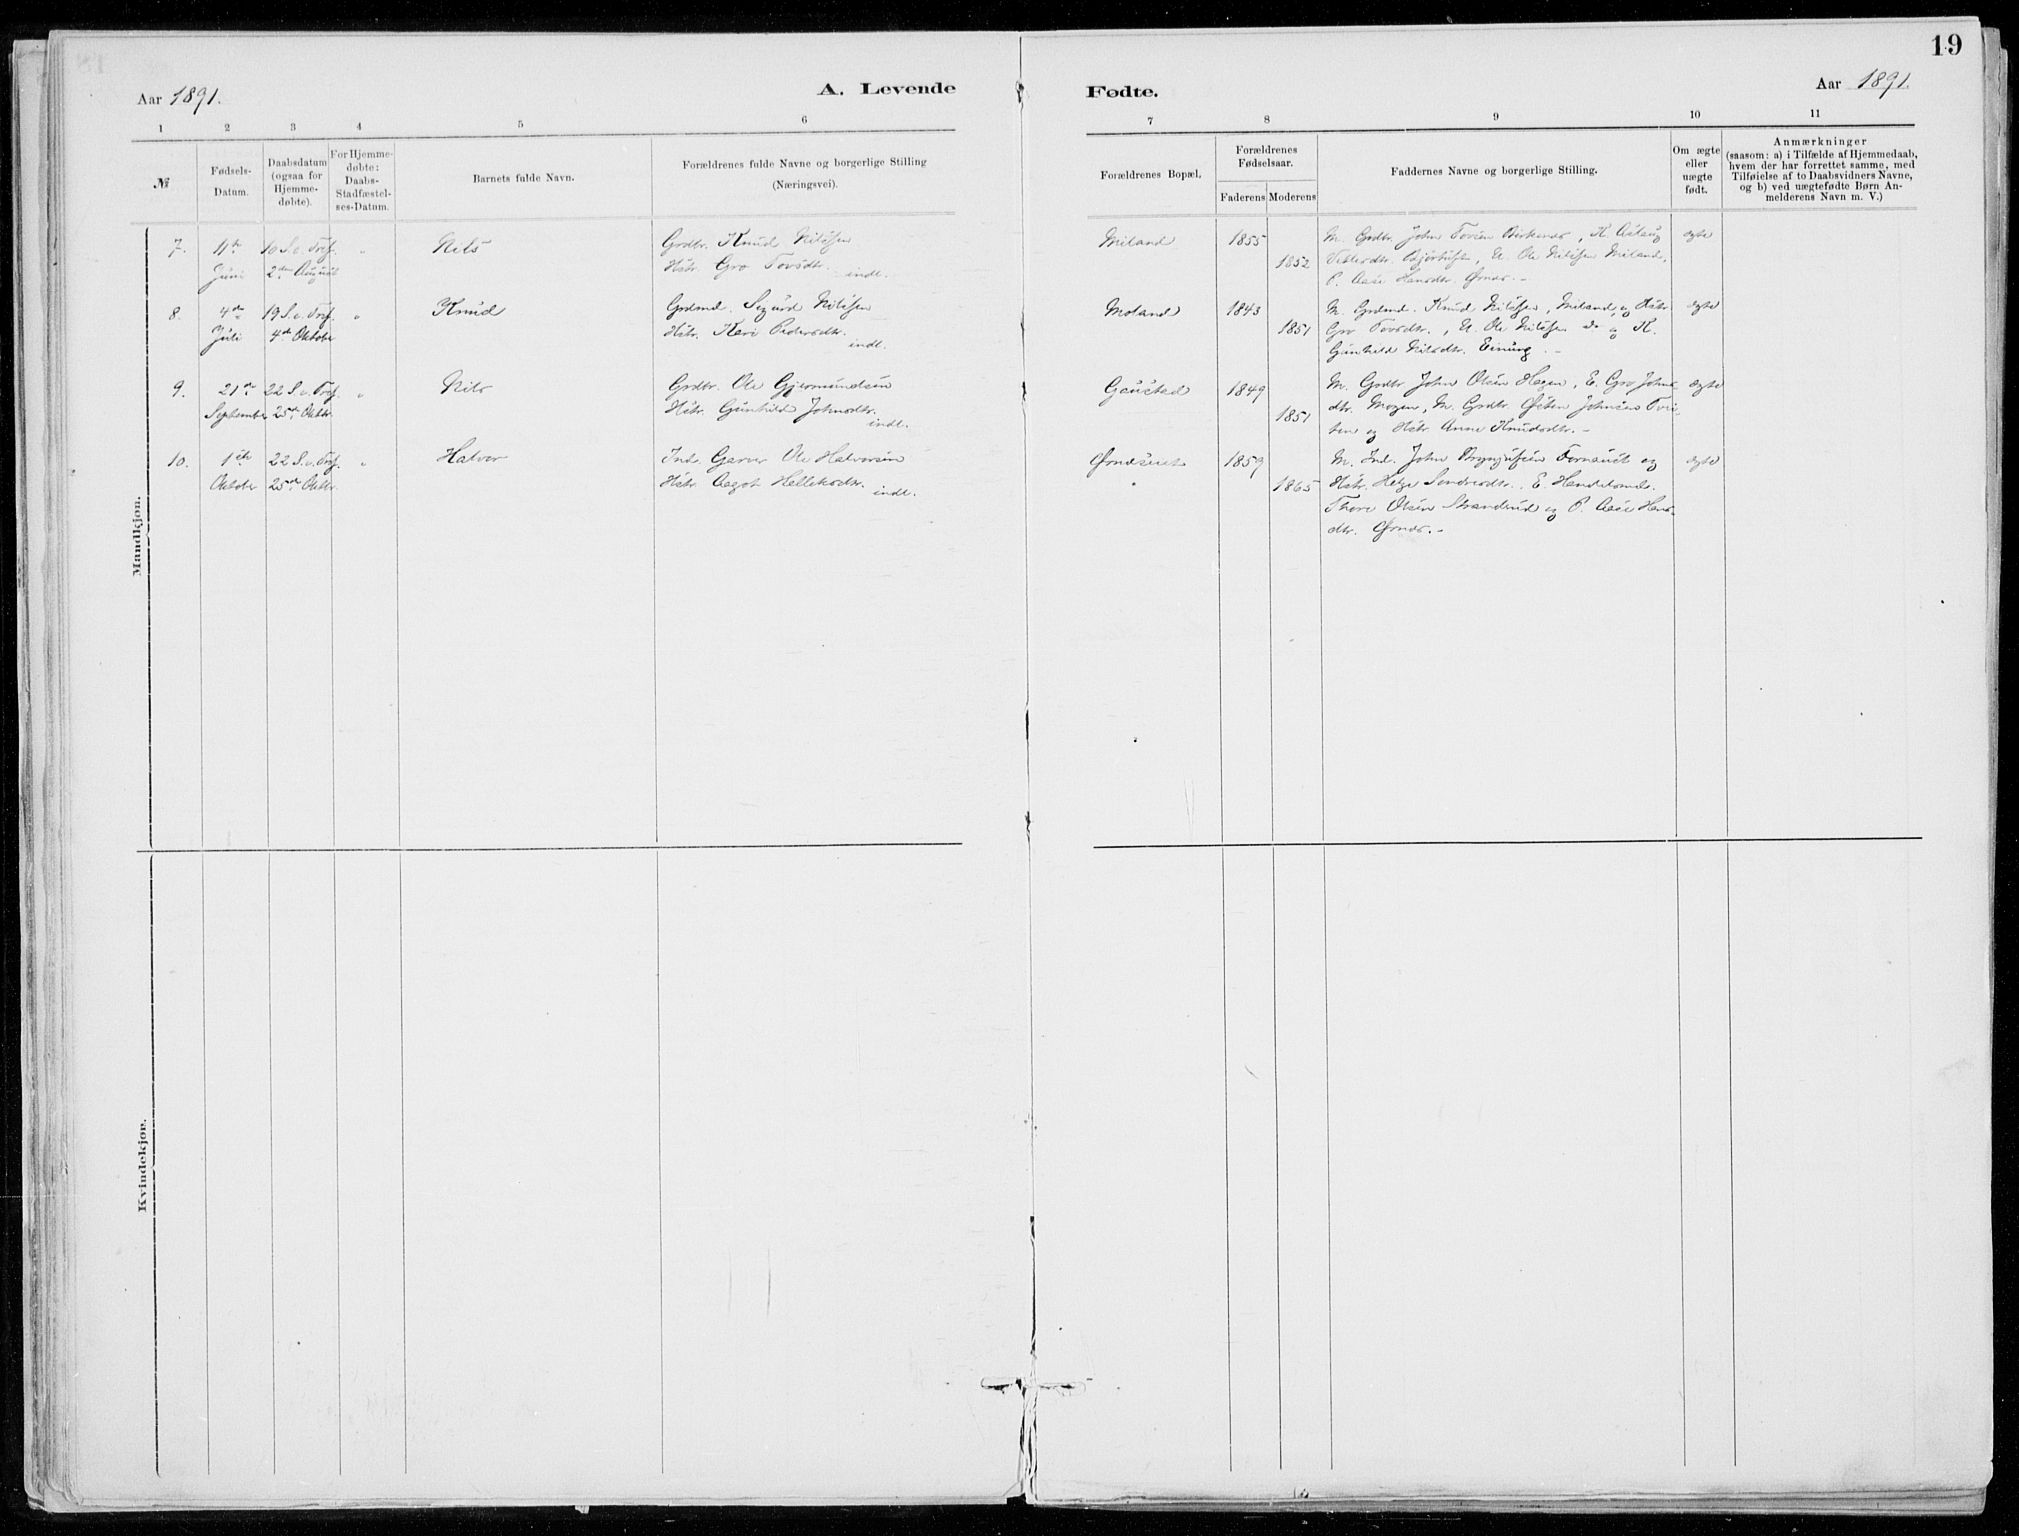 19
Aar 1891.
A. Levende
Fødte.
Aar 1891.
1 2 3 4 5 6 7 8 9 10 11
№
Fødsels-
Datum.
Daabsdatum
(ogsaa for
Hjemme-
døbte).
For Hjemme-
døbte:
Daabs-
Stadfæstel-
ses-Datum.
Barnets fulde Navn.
Forældrenes fulde Navne og borgerlige Stilling
(Næringsvei).
Forældrenes Bopæl.
Forældrenes
Fødselsaar.
Faderens Moderens
Faddernes Navne og borgerlige Stilling.
Om ægte
eller
uægte
født.
Anmærkninger
(saasom: a) i Tilfælde af Hjemmedaab,
hvem der har forrettet samme, med
Tilføielse af to Daabsvidners Navne,
og b) ved uægtefødte Børn An-
melderens Navn m. V.)
Mandkjøn.
7.
11te
Juni
10 S. e. Tref.
2den August
"
Nils
Grdbr. Knud Nilssen
Hstr. Gro Tovsdtr. indl.
Miland
1855
1852
M. Grdbr. John Tovsen Birkenes, K. Aslaug
Vetlesdtr. Bjørtuft, U. Ole Nilssen Miland,
P. Aase Hansdtr. Ørnes. -
ægte
8.
4de
Juli
19 S. e. Tref.
4de Oktober
"
Knud
Grdmd. Sigurd Nilssen
Hstr. Kari Pedersdtr. indl.
Moland
1843
1851
M. Grdmd. Knud Nilssen, Miland, og Hstr.
Gro Tovsdtr., U. Ole Nilssen do og K.
Gunhild Nilsdtr. Einung. -
ægte
9.
21de
September
22 S. e. Tref.
25de Oktbr.
"
Nils
Grdbr. Ole Gjermundsen
Hstr. Gunhild Johnsdtr. indl.
Gaustad
1849
1851
M. Grdbr. John Olsen Hagen, E. Gro Johns-
dtr. Mogen, M. Grdbr. Østen Johnsen
og Hstr. Anne Knudsdtr. -
ægte
10.
1ste
Oktober
22 S. e. Tref.
25de Oktbr.
"
Halvor
Ind. Garver Ole Halvorsen
Hstr. Aagot Halleksdtr. indl.
Ørnæseiet
"
1859
1865
M. Ind. John Brynjulfsen Fornæs og
Hstr. Helge Sondresdtr., E. Handelsmd.
Thore Olsen Strandrud og P. Aase Hans-
dtr. Ørnes. -
ægte
Kvindekjøn.